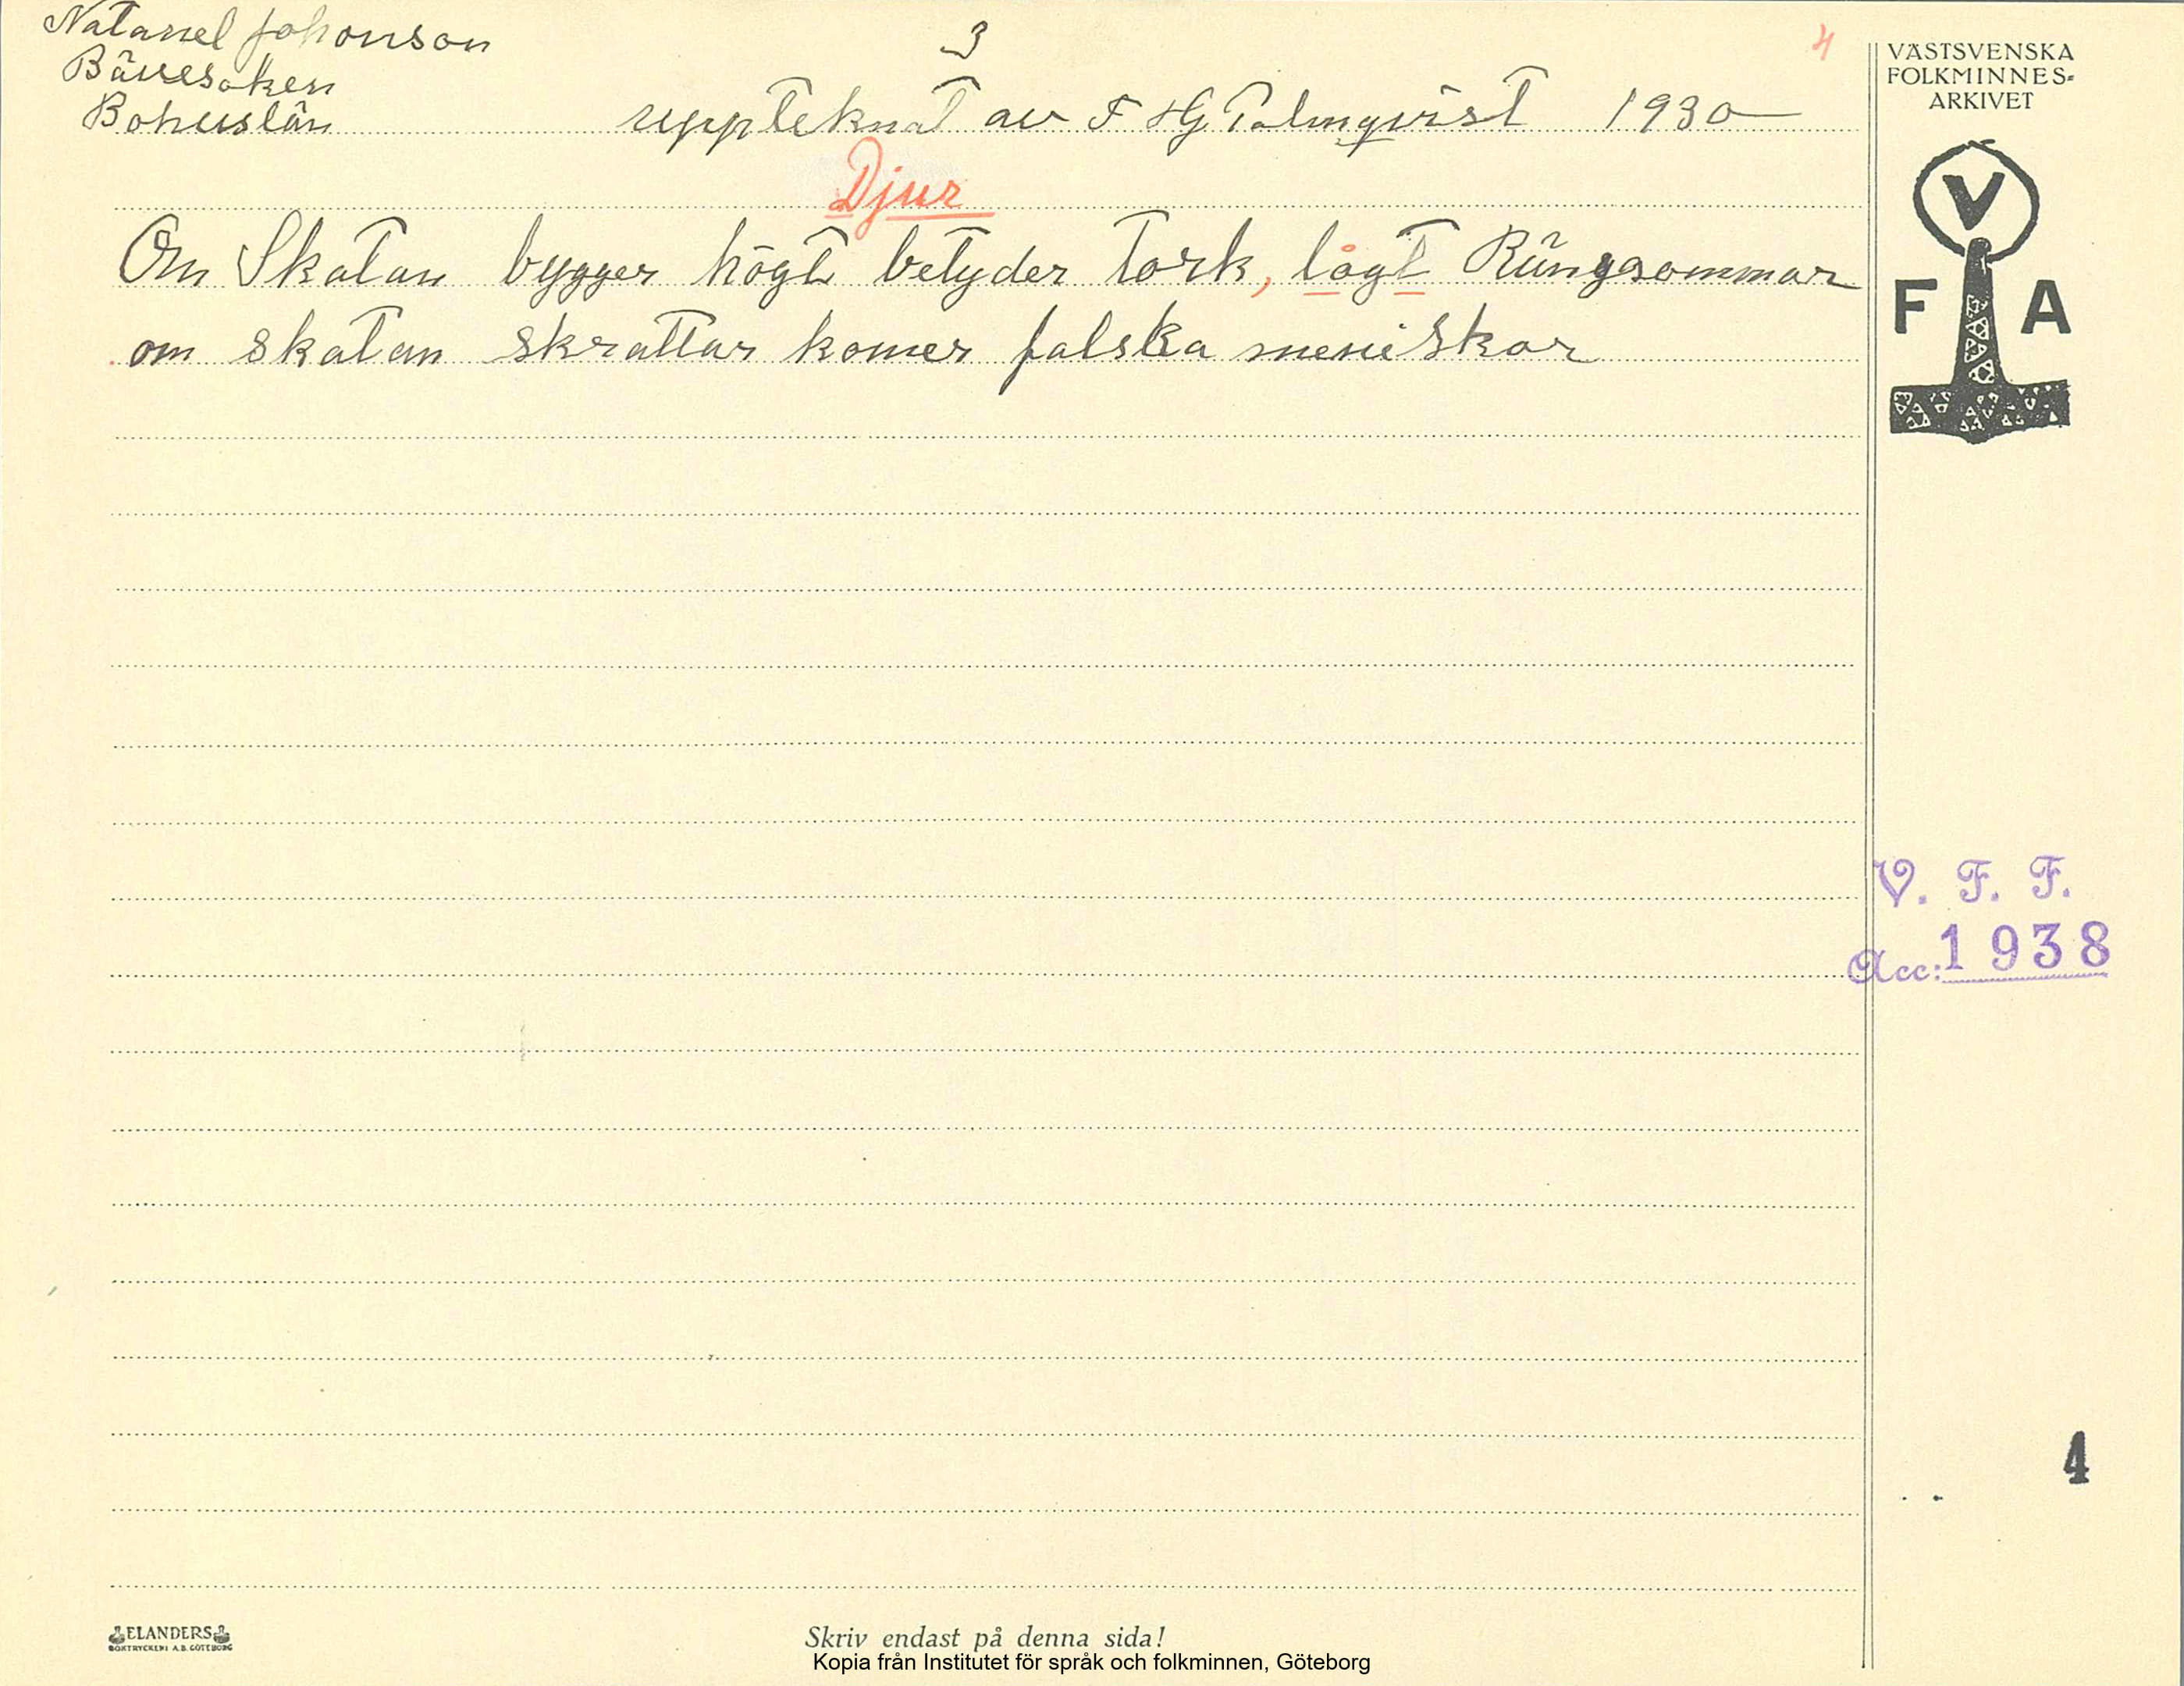 Natanel Johonson
Bävesoken
Bohuslän
3
4
uppteknat av F HG Palmqvist 1930
Djur
Om Skatan bygger högt betyder tork, lågt Rängsommar
om skatan skrattar komer falska meniskor
VÄSTSVENSKA
FOLKMINNES-
ARKIVET
V
F A
V. F. F.
Acc: 1938
4
ELANDERS
BOKTRYCKERI A.B. GÖTEBORG
Skriv endast på denna sida!
Kopia från Institutet för språk och folkminnen, Göteborg